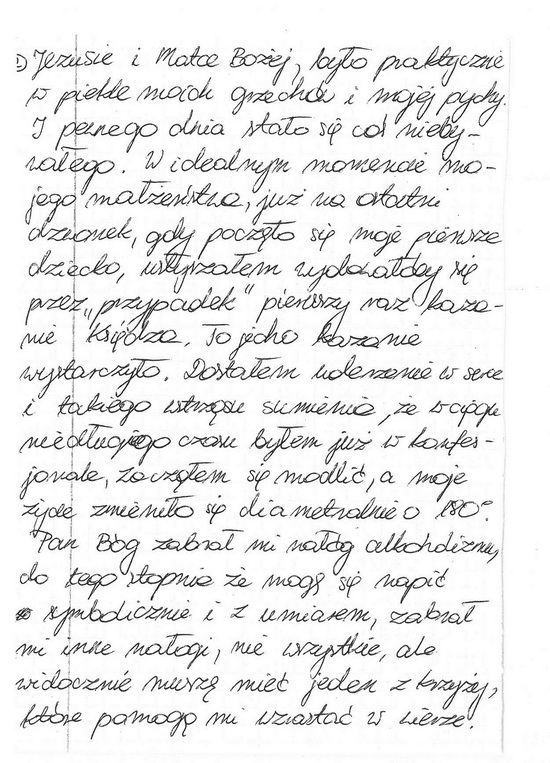 2) Jezusie i Matce Bożej, było praktycznie
w piekle moich grzechów i mojej pychy.
I pewnego dnia stało się coś nieby-
wałego. W idealnym momencie mo-
jego małżeństwa, już na ostatni
dzwonek, gdy poczęło się moje pierwsze
dziecko, usłyszałem wydawałoby się
przez „przypadek" pierwszy raz kaza-
nie Księdza. To jedno kazanie
wystarczyło. Dostałem uderzenie w serce
i takiego wstrząsu sumienia, że w ciągu
niedługiego czasu byłem już w konfes-
jonale, zacząłem się modlić, a moje
życie zmieniło się diametralnie o 180°.
Pan Bóg zabrał mi nałóg alkoholizmu,
do tego stopnia że mogę się napić
symbolicznie i z umiarem, zabrał
mi inne nałogi, nie wszystkie, ale
widocznie muszę mieć jeden z krzyży,
które pomogą mi wzrastać w wierze.